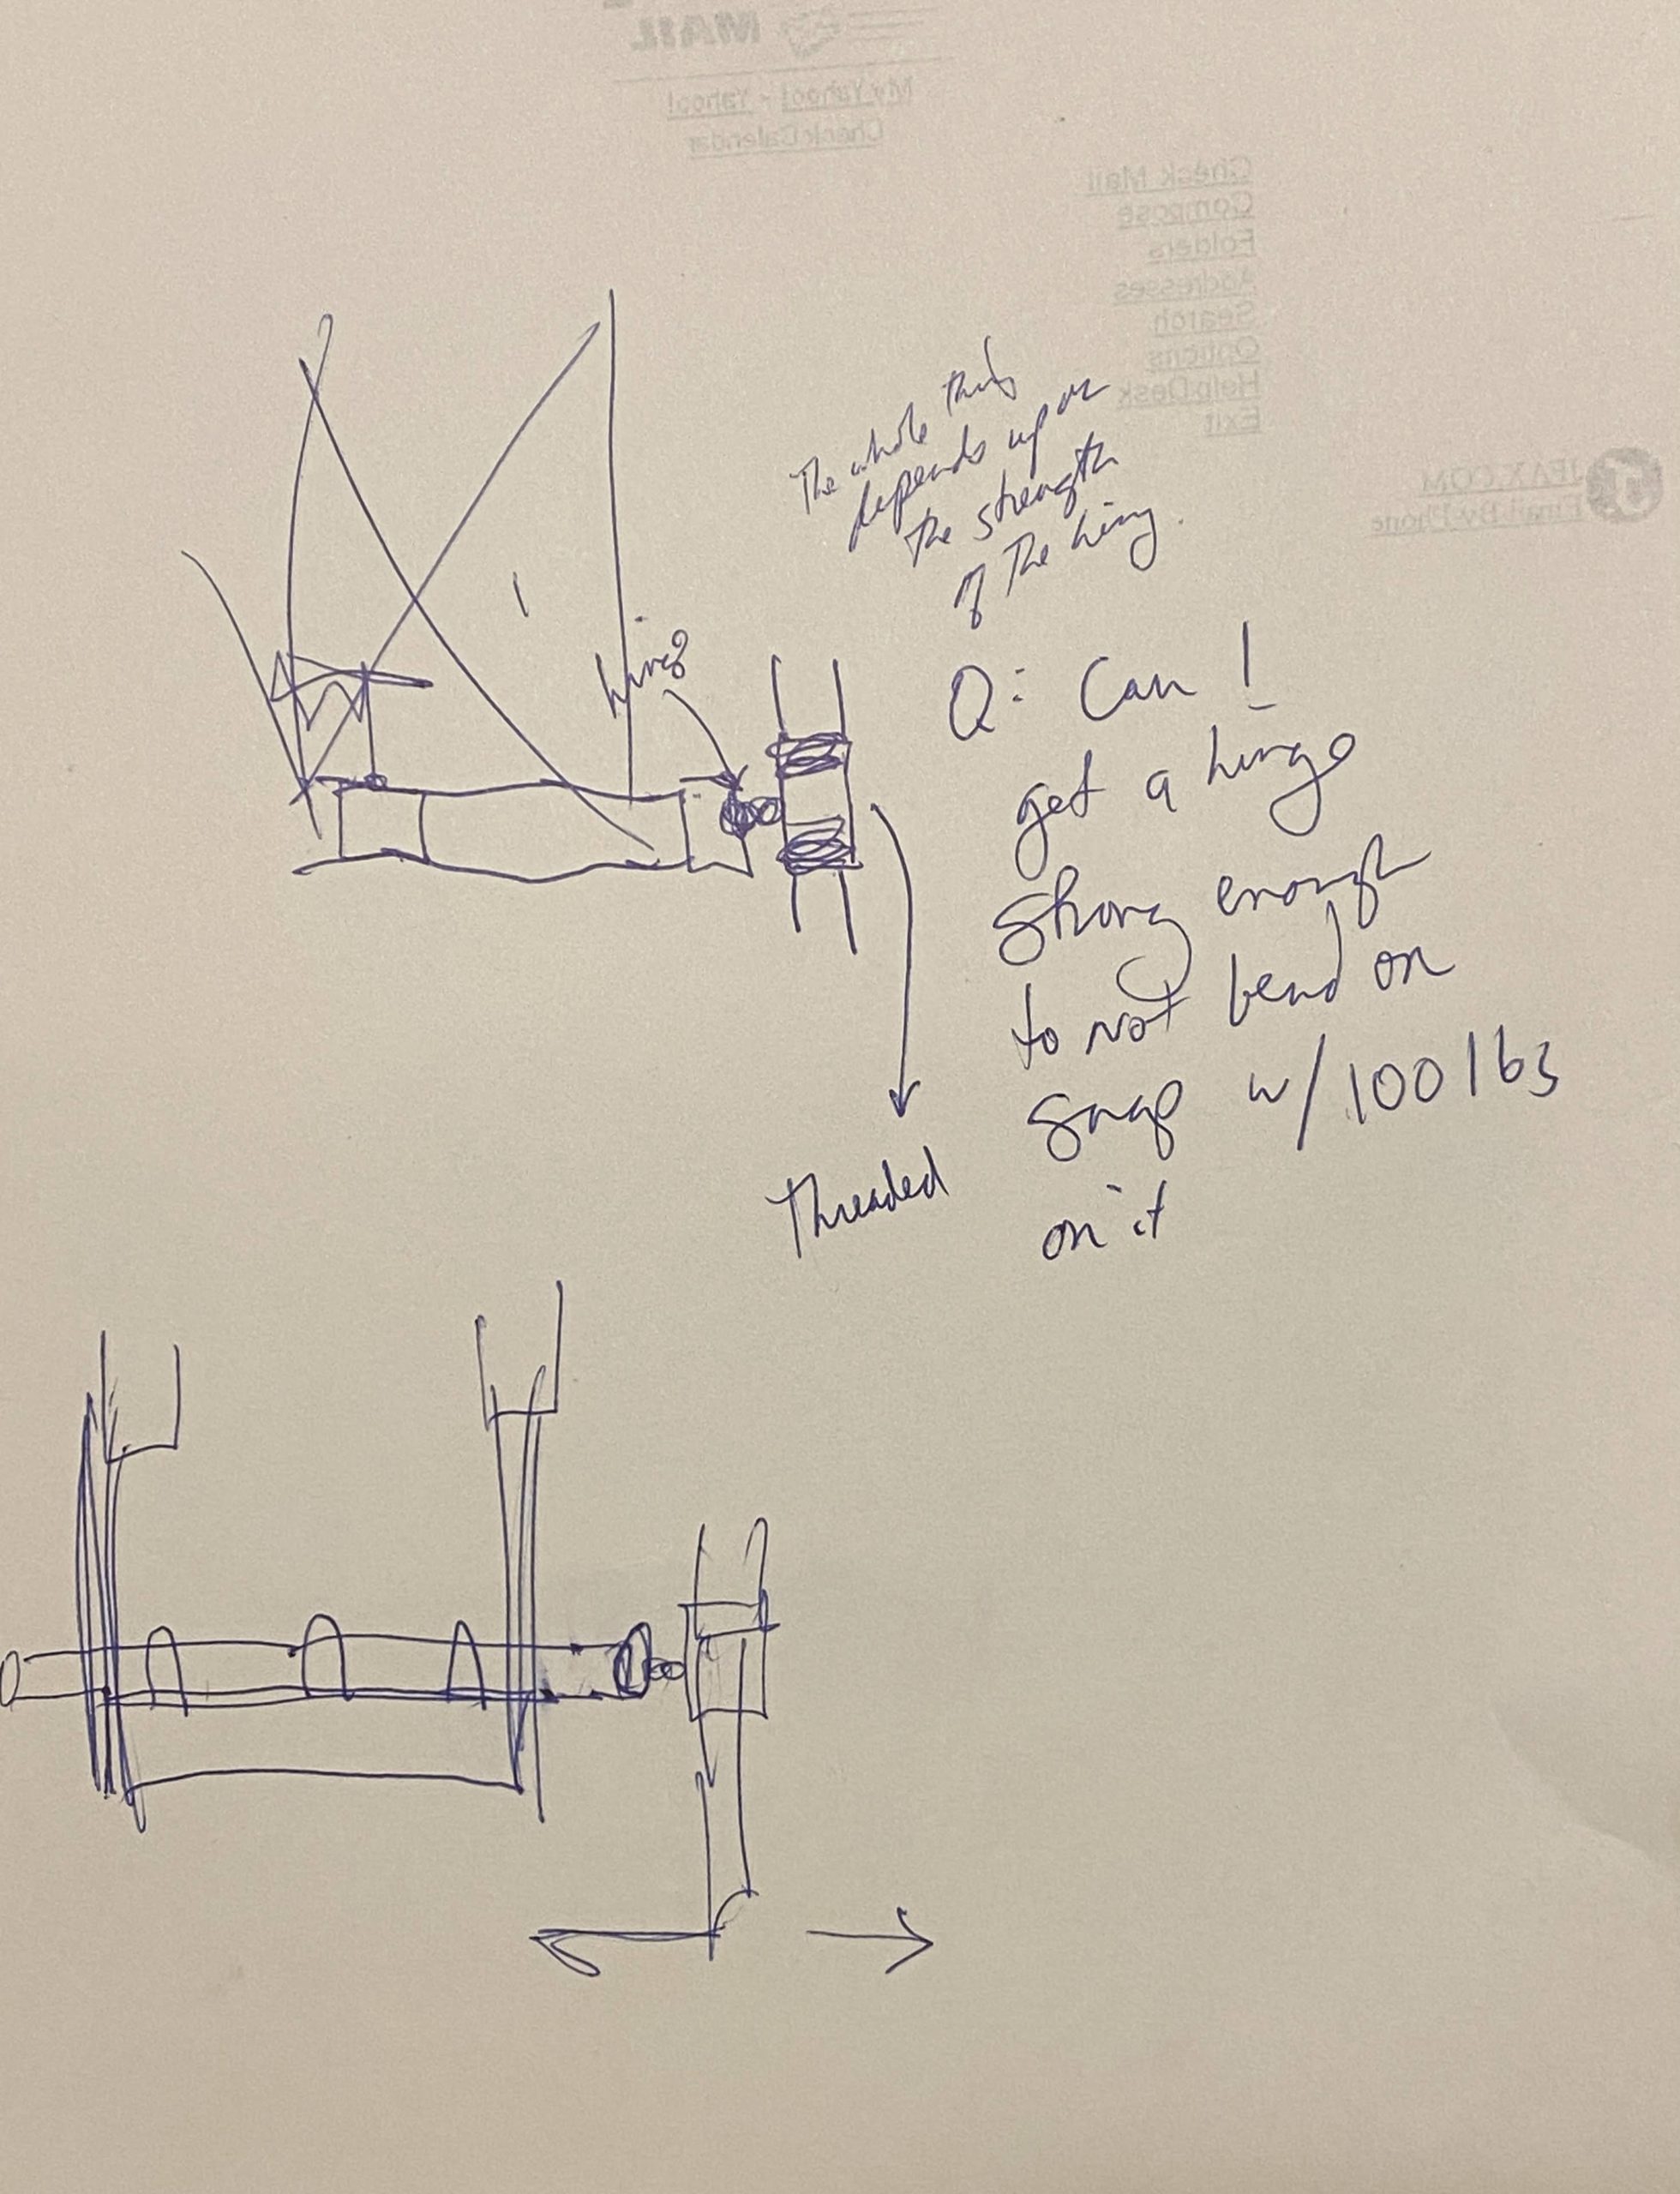 MAIL
My Yahoo! - Yahoo!
Check Calendar
Check Mail
Compose
Folders
Addresses
Search
Options
Help Desk
Exit
JFAX.COM
Email By Phone
The whole thing
depends upon
the strength
of the hing.
hinge
Q: Can I
get a hinge
strong enough
to not bend or
snap w/100 lbs
on it
Threaded